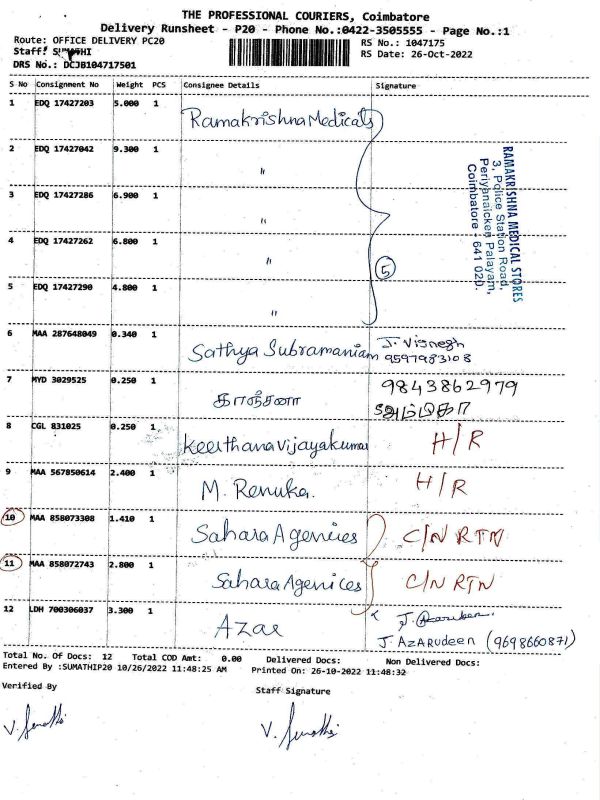 THE PROFESSIONAL COURIERS, Coimbatore
Delivery Runsheet - P20 - Phone No.:0422-3505555 - Page No.:1
Route: OFFICE DELIVERY PC20
RS No.: 1047175
Staff: SUMATHI
RS Date: 26-Oct-2022
DRS No.: DCJB104717501
S No Consignment No Weight PCS Consignee Details Signature
1 EDQ 17427203 5.000 1 Ramakrishna Medicals
2 EDQ 17427042 9.300 1 "
3 EDQ 17427286 6.900 1 "
4 EDQ 17427262 6.800 1 "
5 EDQ 17427290 4.800 1 "
5
RAMAKRISHNA MEDICAL STORES
3, Police Station Road,
Periyanaicken Palayam,
Coimbatore - 641 020.
6 MAA 287648049 0.340 1 Sathya Subramaniam J. Vignegh
9597983108
7 MYD 3029525 0.250 1 காஞ்சனா 9843862979
அம்பிகா
8 CGL 831025 0.250 1 Keerthana Vijayakumar H/R
9 MAA 567850614 2.400 1 M. Renuka. H/R
10 MAA 858073308 1.410 1 Sahara Agencies C/N RTN
11 MAA 858072743 2.800 1 Sahara Agenices C/N RTN
12 LDH 700306037 3.300 1 Azar
J AZARUDEEN (9698660871)
Total No. Of Docs: 12 Total COD Amt: 0.00 Delivered Docs: Non Delivered Docs:
Entered By :SUMATHIP20 10/26/2022 11:48:25 AM Printed On: 26-10-2022 11:48:32
Verified By
Staff Signature
V. Sumathi
V. Sumathi